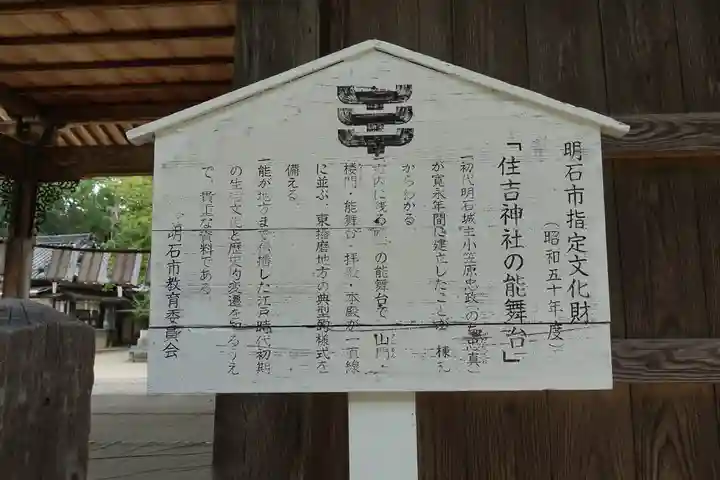 明石市指定文化財
(昭和五十年度)
「住吉神社の能舞台」
初代明石城主小笠原忠政(のち忠真)
が寛永年間に建立したことが 棟札
からわかる
市内に残る 一の能舞台で 山門・
楼門・能舞台・拝殿・本殿が一直線
に並ぶ 東播磨地方の典型的様式を
備える
能が地方まで伝播した江戸時代初期
の生活文化と歴史的変遷を知るうえ
で、貴重な資料である
明石市教育委員会